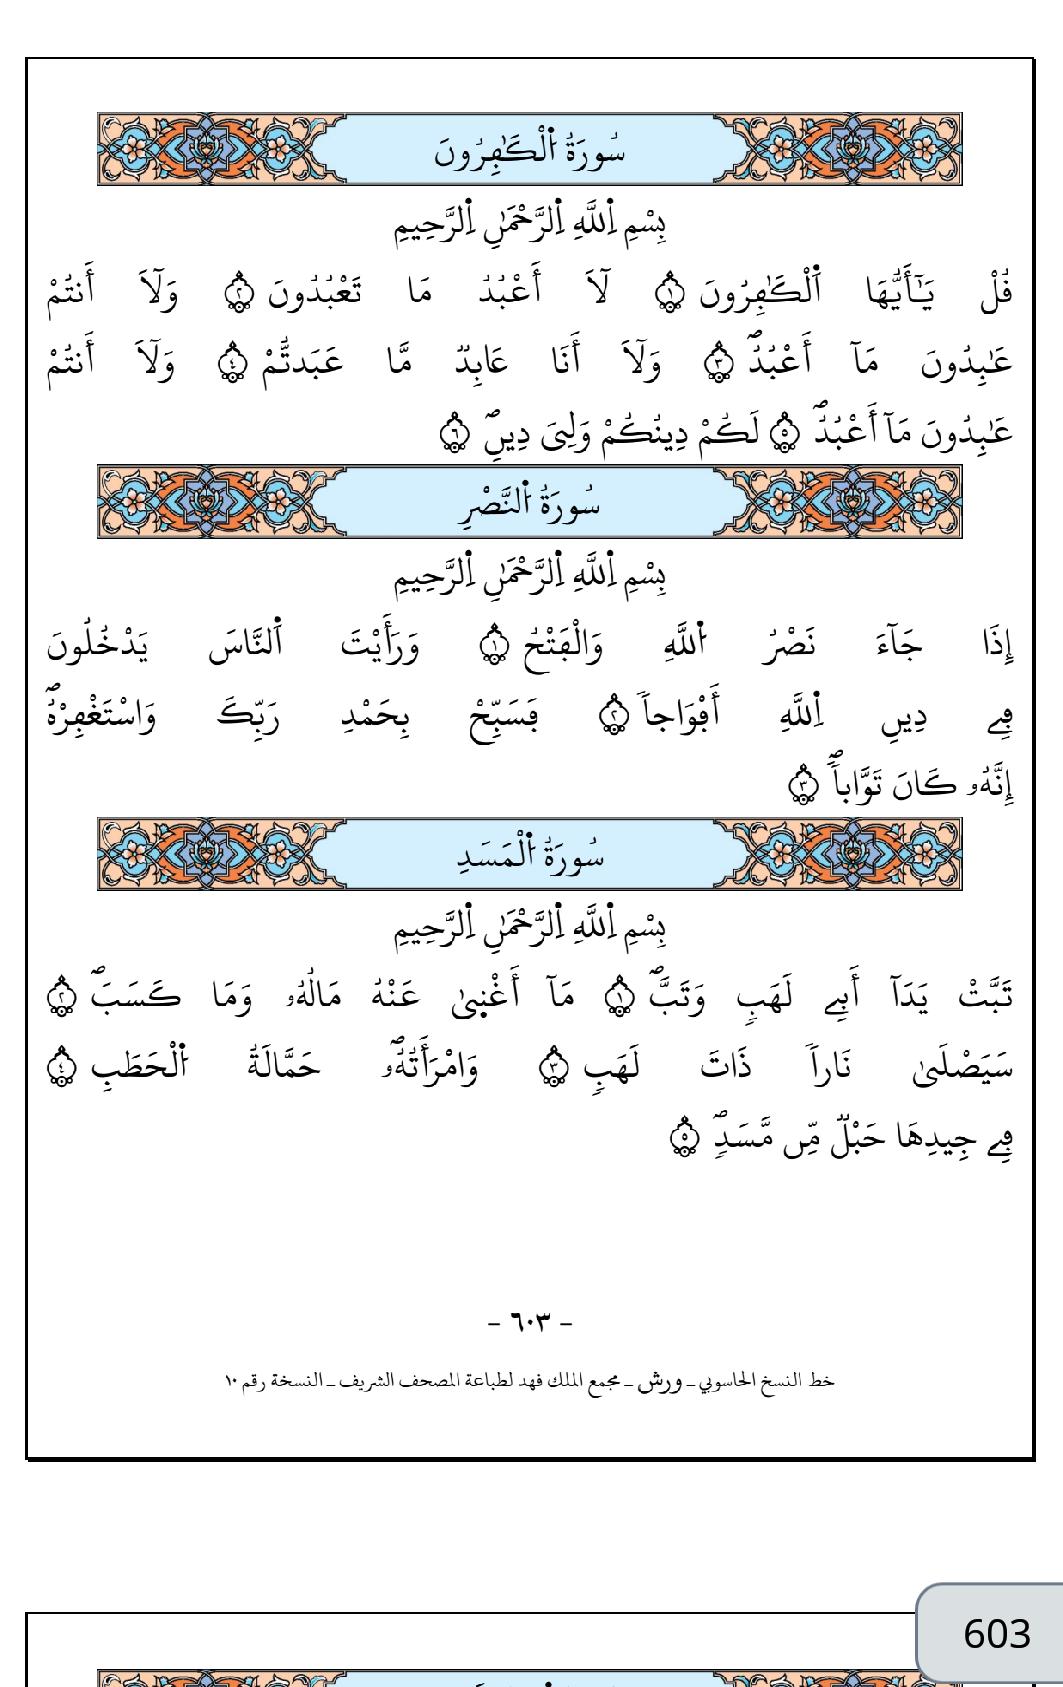 سُورَةُ اُ۬لْكَٰفِرُونَ
بِسْمِ اِ۬للَّهِ اِ۬لرَّحْمَٰنِ اِ۬لرَّحِيمِ
قُلْ يَٰٓأَيُّهَا اَ۬لْكَٰفِرُونَ ١ لَآ أَعْبُدُ مَا تَعْبُدُونَ ٢ وَلَآ أَنتُمْ
عَٰبِدُونَ مَآ أَعْبُدُۖ ٣ وَلَآ أَنَا عَابِدٞ مَّا عَبَدتُّمْ ٤ وَلَآ أَنتُمْ
عَٰبِدُونَ مَآ أَعْبُدُۖ ٥ لَكُمْ دِينُكُمْ وَلِيَ دِينِۖ ٦
سُورَةُ اُ۬لنَّصْرِ
بِسْمِ اِ۬للَّهِ اِ۬لرَّحْمَٰنِ اِ۬لرَّحِيمِ
إِذَا جَآءَ نَصْرُ اُ۬للَّهِ وَالْفَتْحُ ١ وَرَأَيْتَ اَ۬لنَّاسَ يَدْخُلُونَ
فِے دِينِ اِ۬للَّهِ أَفْوَاجاٗ ٢ فَسَبِّحْ بِحَمْدِ رَبِّكَ وَاسْتَغْفِرْهُۖ
إِنَّهُۥ كَانَ تَوَّاباَۢۖ ٣
سُورَةُ اُ۬لْمَسَدِ
بِسْمِ اِ۬للَّهِ اِ۬لرَّحْمَٰنِ اِ۬لرَّحِيمِ
تَبَّتْ يَدَآ أَبِے لَهَبٖ وَتَبَّۖ ١ مَآ أَغْن۪يٰ عَنْهُ مَالُهُۥ وَمَا كَسَبَۖ ٢
سَيَصْلَىٰ نَاراٗ ذَاتَ لَهَبٖ ٣ وَامْرَأَتُهُۥۖ حَمَّالَةُ اُ۬لْحَطَبِ ٤
فِے جِيدِهَا حَبْلٞ مِّن مَّسَدٖۖ ٥
- ٦٠٣ -
خط النسخ الحاسوبي ــ ورش ــ مجمع الملك فهد لطباعة المصحف الشريف ــ النسخة رقم ١٠
603